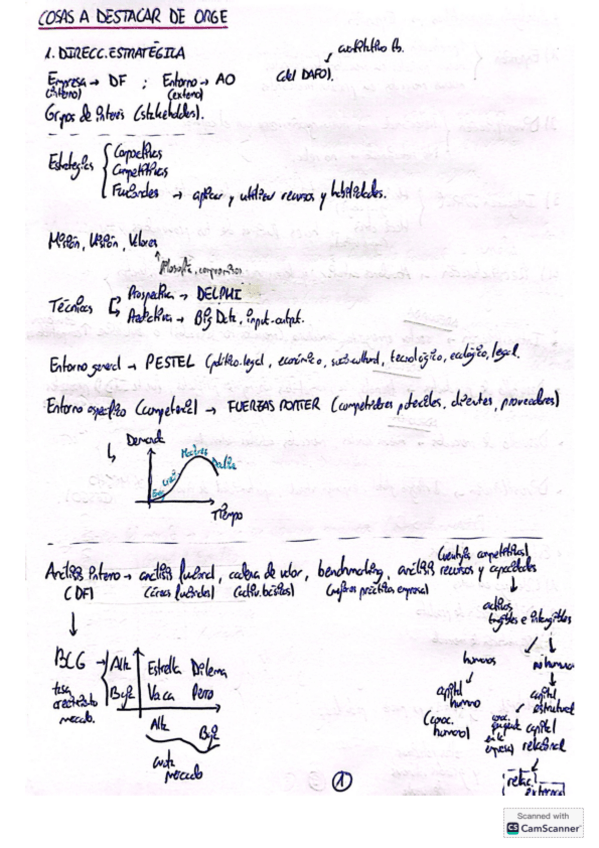 COSAS A DESTACAR DE ORGE
1. DIRECC. ESTRATÉGICA
Empresa → DF ; Entorno → AO (del DAFO).
(interno) (externo)
Grupos de interés (stakeholders).
Estrategias { Corporativas
Competitivas
Funcionales → aplicar y utilizar recursos y habilidades.
Misión, Visión, Valores
filosofía, compromisos
Técnicas Prospectiva → DELPHI
→ Big Data, input-output.
Entorno general → PESTEL (político-legal, económico, sociocultural, tecnológico, ecológico, legal.
Entorno específico (competencia) → FUERZAS PORTER (competidores potenciales, clientes, proveedores)
Demanda
Tiempo
(ventajas competitivas)
Análisis interno → análisis funcional, cadena de valor, benchmarking, análisis recursos y capacidades
(DF) (áreas funcionales) (activ. básicas) (mejores prácticas empresa)
activos
tangibles e intangibles
BCG → Alta Estrella Dilema
Baja Vaca Perro
tasa
crecimiento
mercado.
Alta Baja
cuota
mercado
humanos
capital
humano
(capac.
humana)
no humanos
capital
estructural
capital
relacional
relac.
externas
1
Scanned with
CS CamScanner